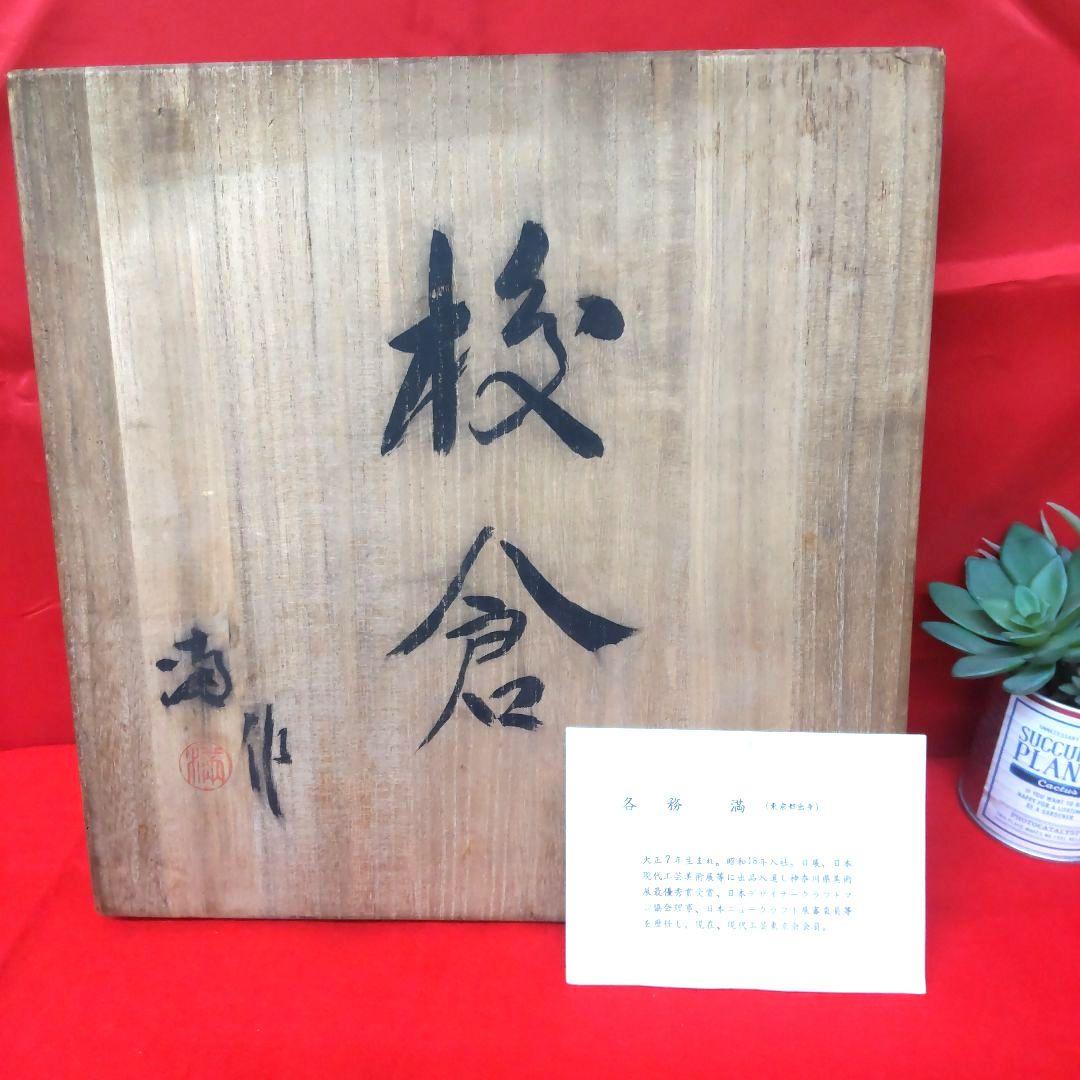 校倉
満作
各務 満 (東京都出身)
大正7年生まれ。昭和18年入社、日展、日本
現代工芸美術展等に出品入選し神奈川県美術
展最優秀賞受賞、日本デザイナークラフトマ
ン協会理事、日本ニュークラフト展審査員等
を歴任し、現在、現代工芸東京会会員。
SUCCU
PLAN
Cactus
IF YOU WANT TO B
HAPPY FOR A LIFETIM
BE A GARDENER
PHOTOCATALYST